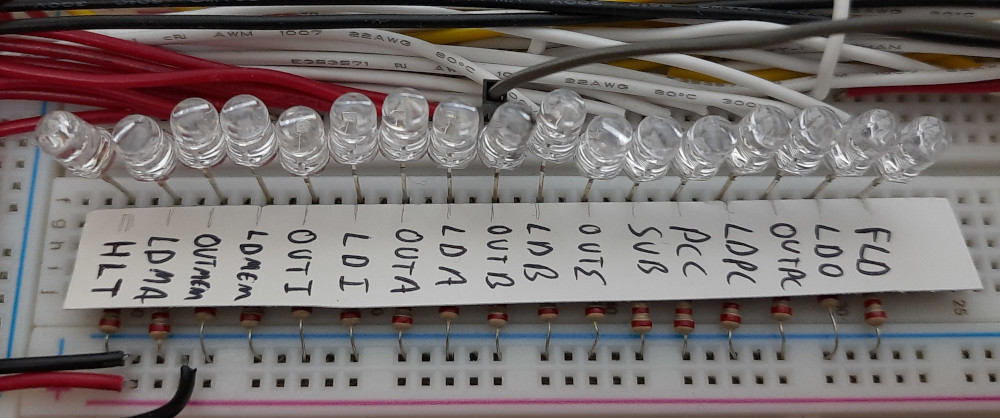 AWM 1007 22AWG 80°C
22AWG 80°C 300
HLT
LDMA
OUTMEM
LDMEM
OUTI
LDI
OUTA
LDA
OUTB
LDB
OUTE
SUB
PCC
LDPC
OUTPC
LDO
FLD
25